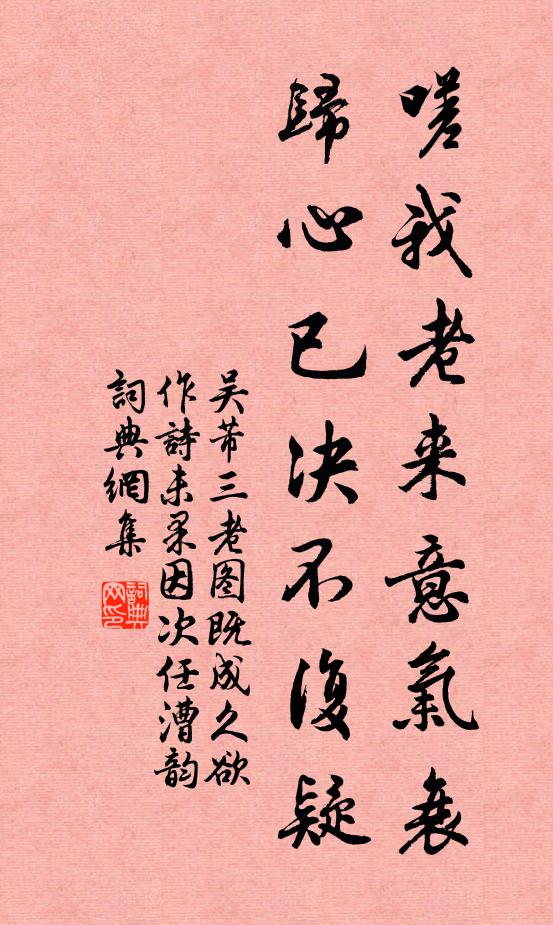 嗟我老来意氣衰
歸心已决不復疑
吴芾三老图既成久欲
作詩未果因次任漕韵
詞典網集
詞典網印